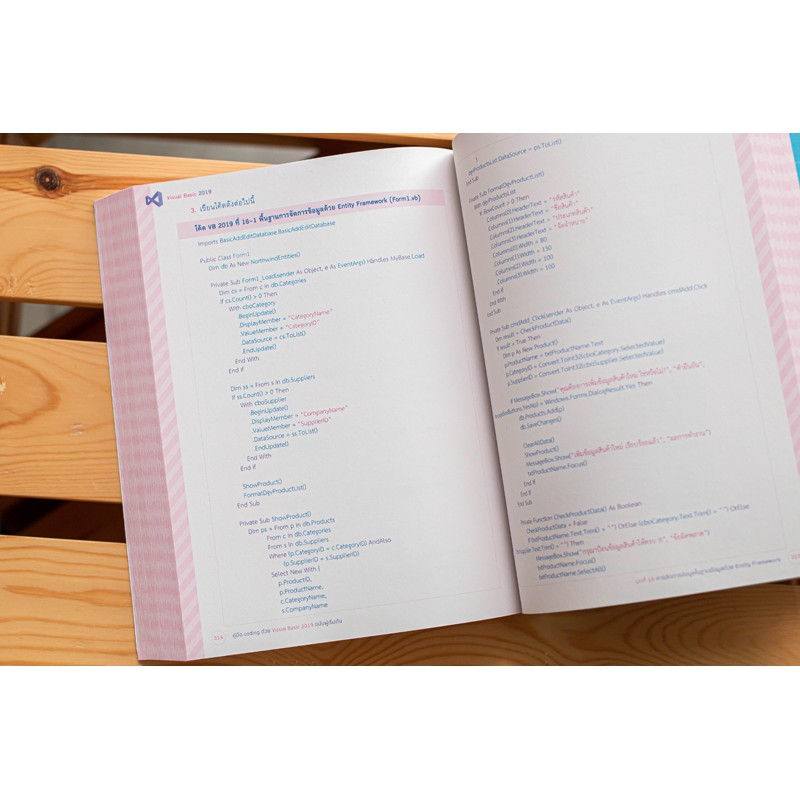 Visual Basic 2019
3. เขียนโค้ดดังต่อไปนี้
โค้ด VB 2019 ที่ 16-1 พื้นฐานการจัดการข้อมูลด้วย Entity Framework (Form1.vb)
Imports BasicAddEditDatabase.BasicAddEditDatabase
Public Class Form1
Dim db As New NorthwindEntities()
Private Sub Form1_Load(sender As Object, e As EventArgs) Handles MyBase.Load
Dim cs = From c In db.Categories
If cs.Count() > 0 Then
With cboCategory
.BeginUpdate()
.DisplayMember = "CategoryName"
.ValueMember = "CategoryID"
.DataSource = cs.ToList()
.EndUpdate()
End With
End If
Dim ss = From s In db.Suppliers
If ss.Count() > 0 Then
With cboSupplier
.BeginUpdate()
.DisplayMember = "CompanyName"
.ValueMember = "SupplierID"
.DataSource = ss.ToList()
.EndUpdate()
End With
End If
ShowProduct()
FormatDgvProductList()
End Sub
Private Sub ShowProduct()
Dim ps = From p In db.Products
From c In db.Categories
From s In db.Suppliers
Where (p.CategoryID = c.CategoryID) AndAlso
(p.SupplierID = s.SupplierID)
Select New With {
p.ProductID,
p.ProductName,
c.CategoryName,
s.CompanyName
314 คู่มือ coding ด้วย Visual Basic 2019 ฉบับผู้เริ่มต้น
}
dgvProductList.DataSource = ps.ToList()
End Sub
Private Sub FormatDgvProductList()
With dgvProductList
If .RowCount > 0 Then
.Columns(0).HeaderText = "รหัสสินค้า"
.Columns(1).HeaderText = "ชื่อสินค้า"
.Columns(2).HeaderText = "ประเภทสินค้า"
.Columns(3).HeaderText = "ผู้จำหน่าย"
.Columns(0).Width = 80
.Columns(1).Width = 150
.Columns(2).Width = 100
.Columns(3).Width = 100
End If
End With
End Sub
Private Sub cmdAdd_Click(sender As Object, e As EventArgs) Handles cmdAdd.Click
Dim result = CheckProductData()
If result = True Then
Dim p As New Product()
p.ProductName = txtProductName.Text
p.CategoryID = Convert.ToInt32(cboCategory.SelectedValue)
p.SupplierID = Convert.ToInt32(cboSupplier.SelectedValue)
If MessageBox.Show("คุณต้องการเพิ่มข้อมูลสินค้าใหม่ ใช่หรือไม่?", "คำยืนยัน",
MessageBoxButtons.YesNo) = Windows.Forms.DialogResult.Yes Then
db.Products.Add(p)
db.SaveChanges()
ClearAllData()
ShowProduct()
MessageBox.Show("เพิ่มข้อมูลสินค้าใหม่ เรียบร้อยแล้ว", "ผลการทำงาน")
txtProductName.Focus()
End If
End If
End Sub
Private Function CheckProductData() As Boolean
CheckProductData = False
If (txtProductName.Text.Trim() = "") OrElse (cboCategory.Text.Trim() = "") OrElse
Text.Trim() = "") Then
MessageBox.Show("กรุณาป้อนข้อมูลสินค้าให้ครบ !!!", "ข้อผิดพลาด")
txtProductName.Focus()
txtProductName.SelectAll()
บทที่ 16 การจัดการข้อมูลพื้นฐานด้วย Entity Framework